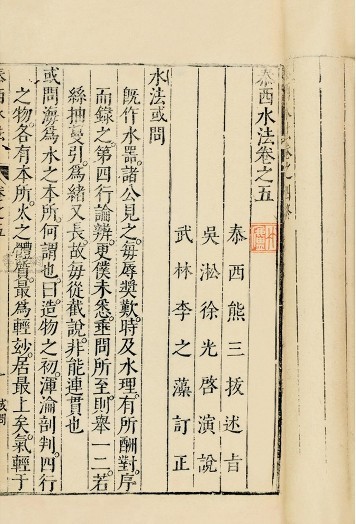 泰西水法卷之五
泰西熊三拔述旨
吳淞徐光啓演說
武林李之藻訂正
水法或問
旣作水器諸公見之每辱奬歎時及水理有所酬對序
而錄之第四行論辨更僕未悉垂問所至則舉一二若
絲抽蔓引爲緒又長故每從截說非能連貫也
或問海爲水之本所何謂也曰造物之初渾淪剖判四行
之物各有本所火之體質最爲輕玅居最上矣氣輕于
泰西水法
卷之五
或問